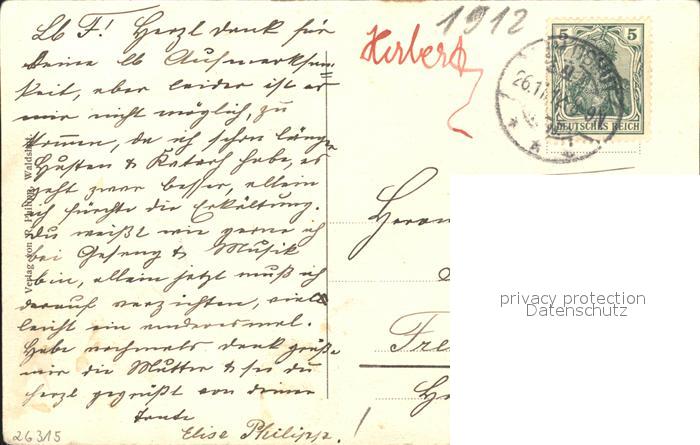 Lb F! Herzl dank für
deine lb Aufmerksam=
keit, aber leider ist es
mir nicht möglich, zu
kommen, da ich schon länger
Husten & Katarh habe, es
geht zwar besser, allein
ich fürchte die Erkältung.
Du weißt wie gerne ich
bei Geseng & Musik
bin, allein jetzt muß ich
darauf verzichten, viel
leicht ein anderesmal.
Habe nochmals dank grüße
mir die Mutter & sei du
herzl gegrüßt von deiner
Tante
Elise Philipp.
26315
Verlag von Philipp, Waldshut
Herbert
1912
5 5
DEUTSCHES REICH
26.11
Herrn
Fre
privacy protection
Datenschutz